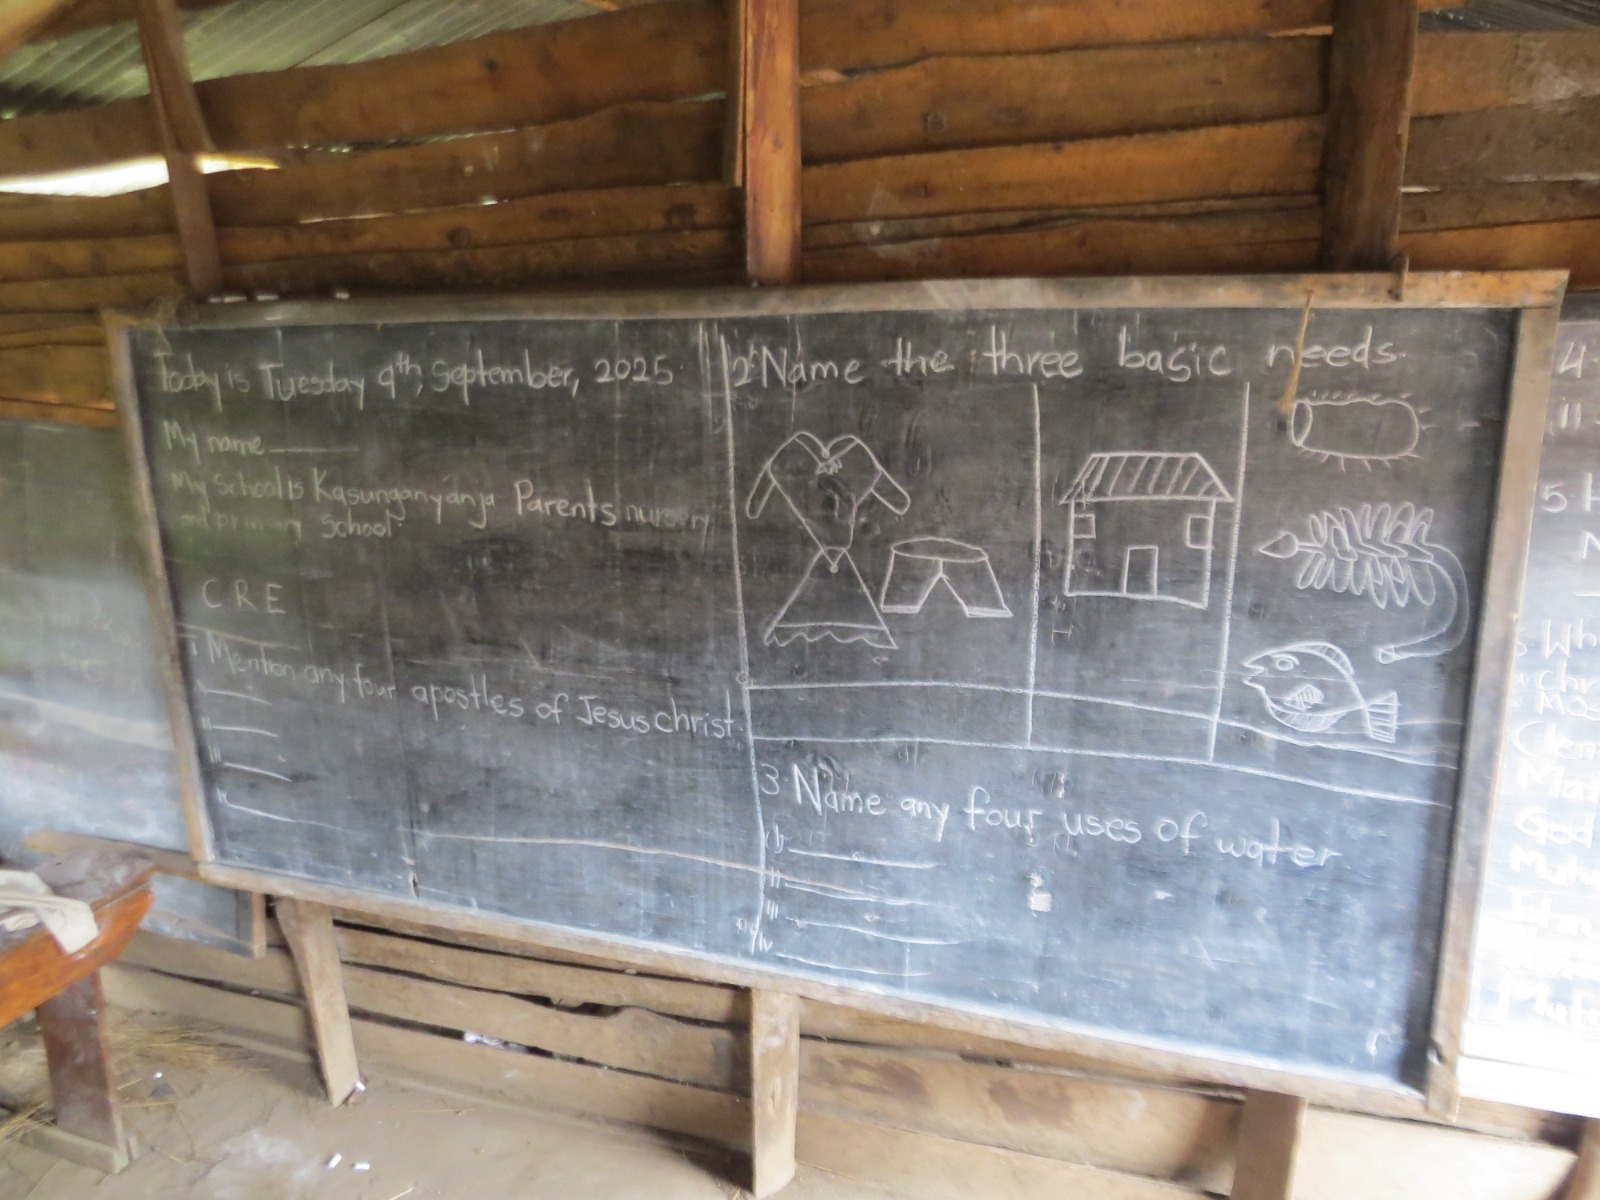 Today is Tuesday 9th, September, 2025.
My name
My school is Kasunganyanja Parents nursery
and primary School.
C R E
1 Mention any four apostles of Jesus christ.
i
ii
iii
iv
2. Name the three basic needs.
3. Name any four uses of water
(i)
ii
iii
iv
4.
ii
5. H
N
Wh
chr
Mos
Clem
Mat
God